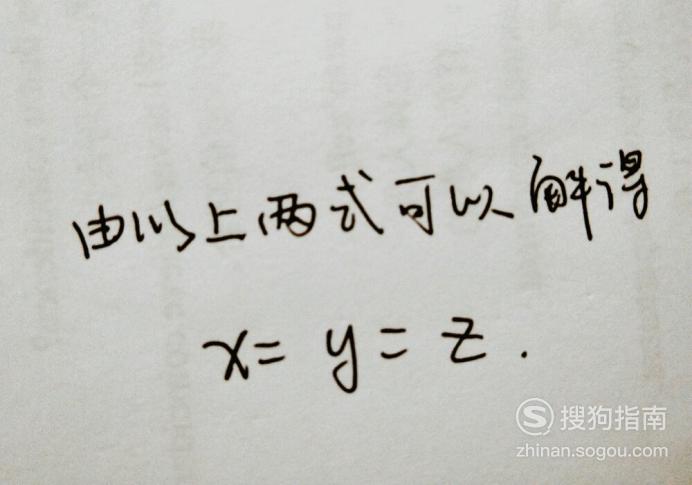 由以上两式可以解得
x = y = z .
搜狗指南
zhinan.sogou.com